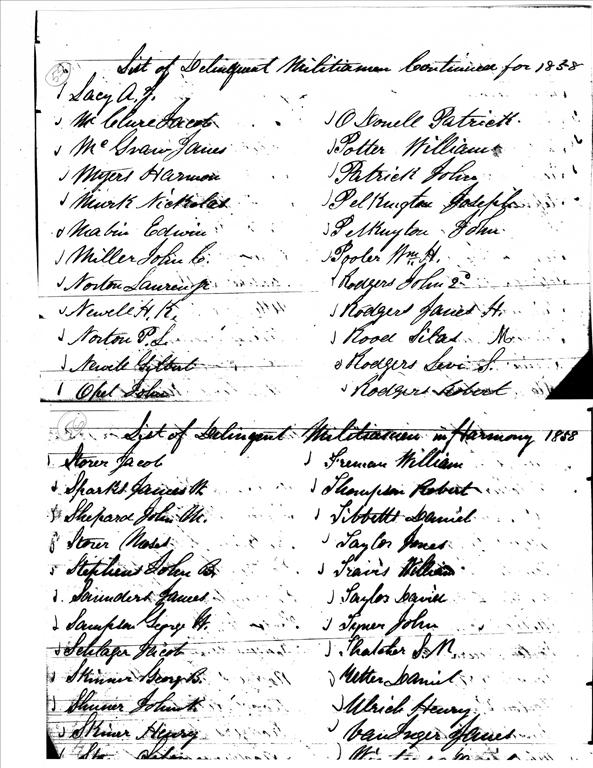 56
List of Delinquent Militiamen Continued for 1858
Lacy A. J.
McClure Jacob
McGraw James
Myers Harmon
Murk Nickolas
Mabin Edwin
Miller John C.
Norton Lauren
Newell H. K.
Norton P. L.
Newell Gilbert
Opel John
O Donell Patrick
Potter William
Patrick John
Pelkington Joseph
Pelkington John
Pooler Wm H.
Rodgers John 2d
Rodgers James H.
Rood Silas M
Rodgers Levi S.
Rodgers Robert
56
List of Delinquent Militiamen in Harmony 1858
Storer Jacob
Sparks James W
Shepard John M.
Storer Moses
Stephens John B.
Saunders James
Sampson George W.
Schlager Jacob
Skinner George C.
Skinner John K
Skiner Henry
Freman William
Thompson Robert
Tibbetts Daniel
Taylor James
Travis William
Taylor David
Tyner John
Thatcher S. M.
Utter Daniel
Ulrich Henry
James